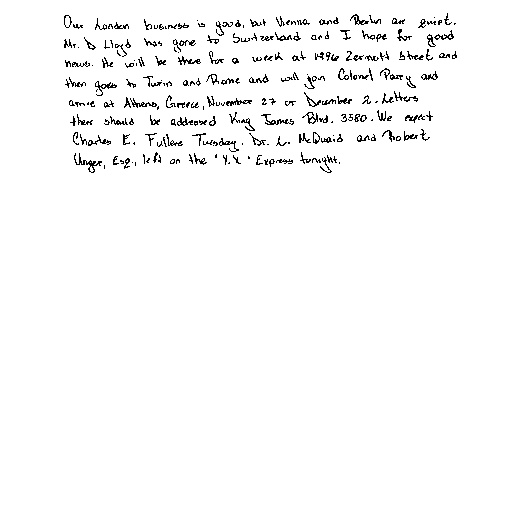 Our London business is good, but Vienna and Berlin are quiet.
Mr. D Lloyd has gone to Switzerland and I hope for good
news. He will be there for a week at 1496 Zermott Street and
then goes to Turin and Rome and will join Colonel Parry and
arrive at Athens, Greece, November 27 or December 2. Letters
there should be addressed King James Blvd. 3580. We expect
Charles E. Fuller Tuesday. Dr. L. McQuaid and Robert
Unger, Esq., left on the "Y.X." Express tonight.